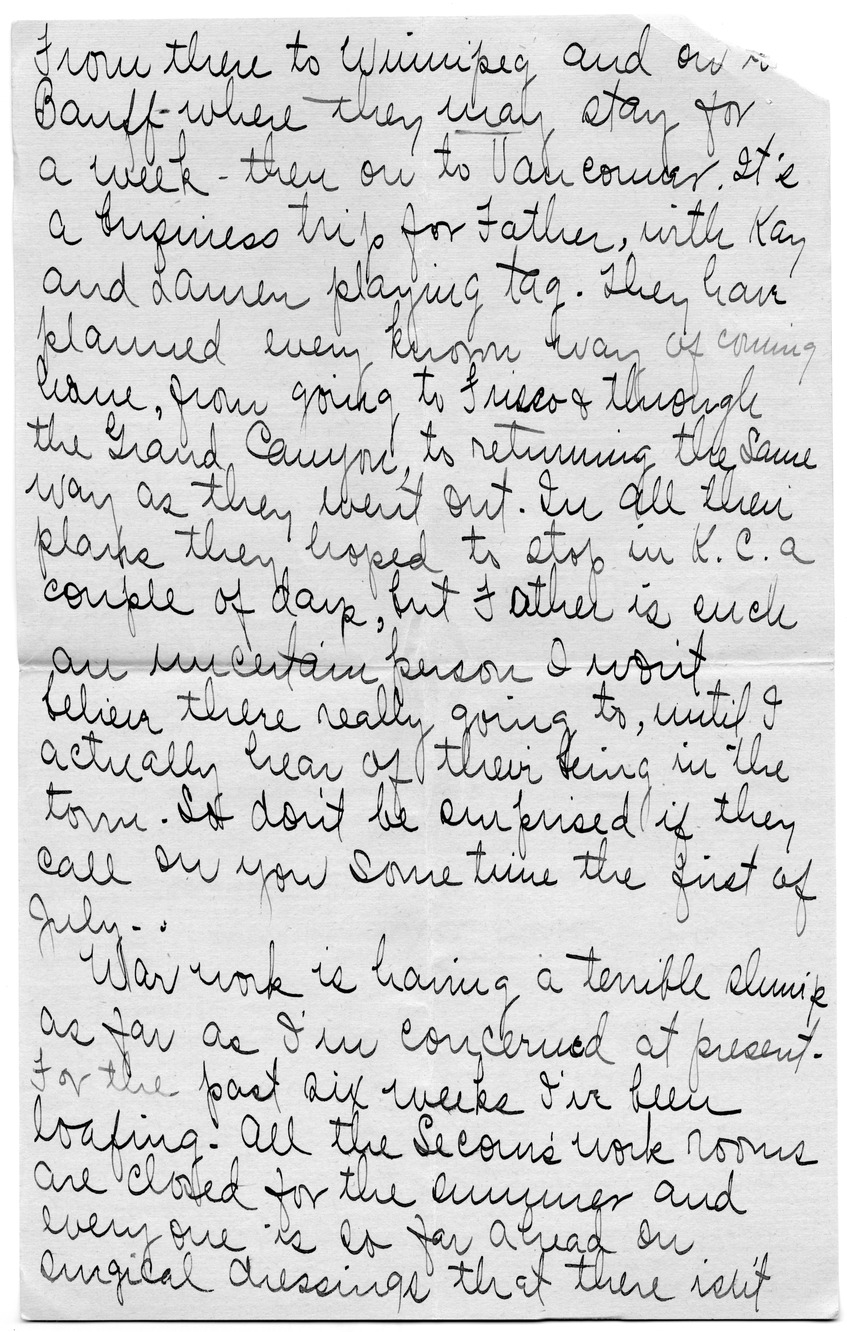 From there to Winnipeg and on
Banff - where they may stay for
a week - then on to Vancouver. It's
a business trip for Father, with Kay
and Lauren playing tag. They have
planned every known way of coming
home, from going to Frisco & through
the Grand Canyon, to returning the same
way as they went out. In all their
plans they hoped to stop in K. C. a
couple of days, but Father is such
an uncertain person I won't
believe there really going to, until I
actually hear of their being in the
town. So don't be surprised if they
call on you sometime the first of
July..
War work is having a terrible slump
as far as I'm concerned at present.
For the past six weeks I've been
loafing. All the work rooms
are closed for the summer and
everyone is so far ahead on
surgical dressings that there isn't